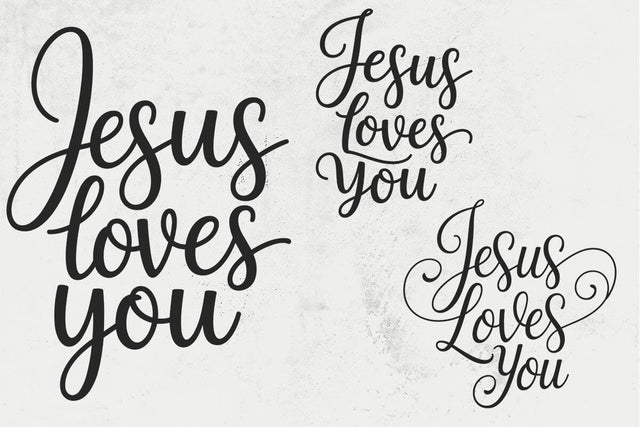 Jesus
loves
you
Jesus
Loves
You
Jesus
Loves
You